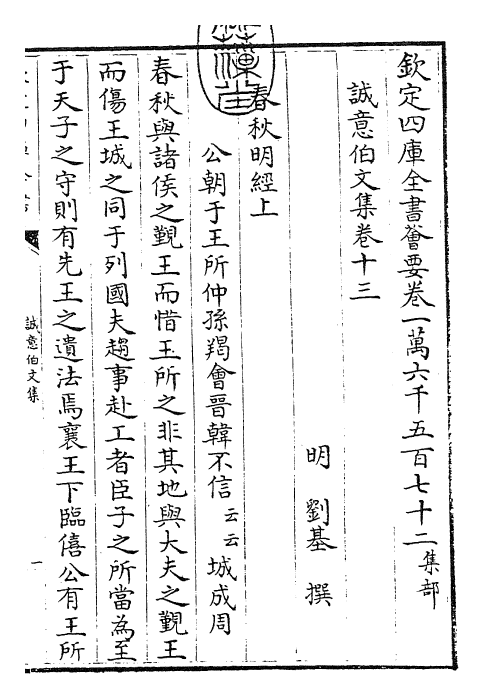 欽定四庫全書薈要卷一萬六千五百七十二集部
誠意伯文集卷十三
明 劉基 撰
春秋明經上
公朝于王所仲孫羯會晉韓不信云云城成周
春秋與諸侯之覲王而惜王所之非其地與大夫之覲王
而傷王城之同于列國夫趨事赴工者臣子之所當為至
于天子之守則有先王之遺法焉襄王下臨僖公有王所
誠意伯文集
一